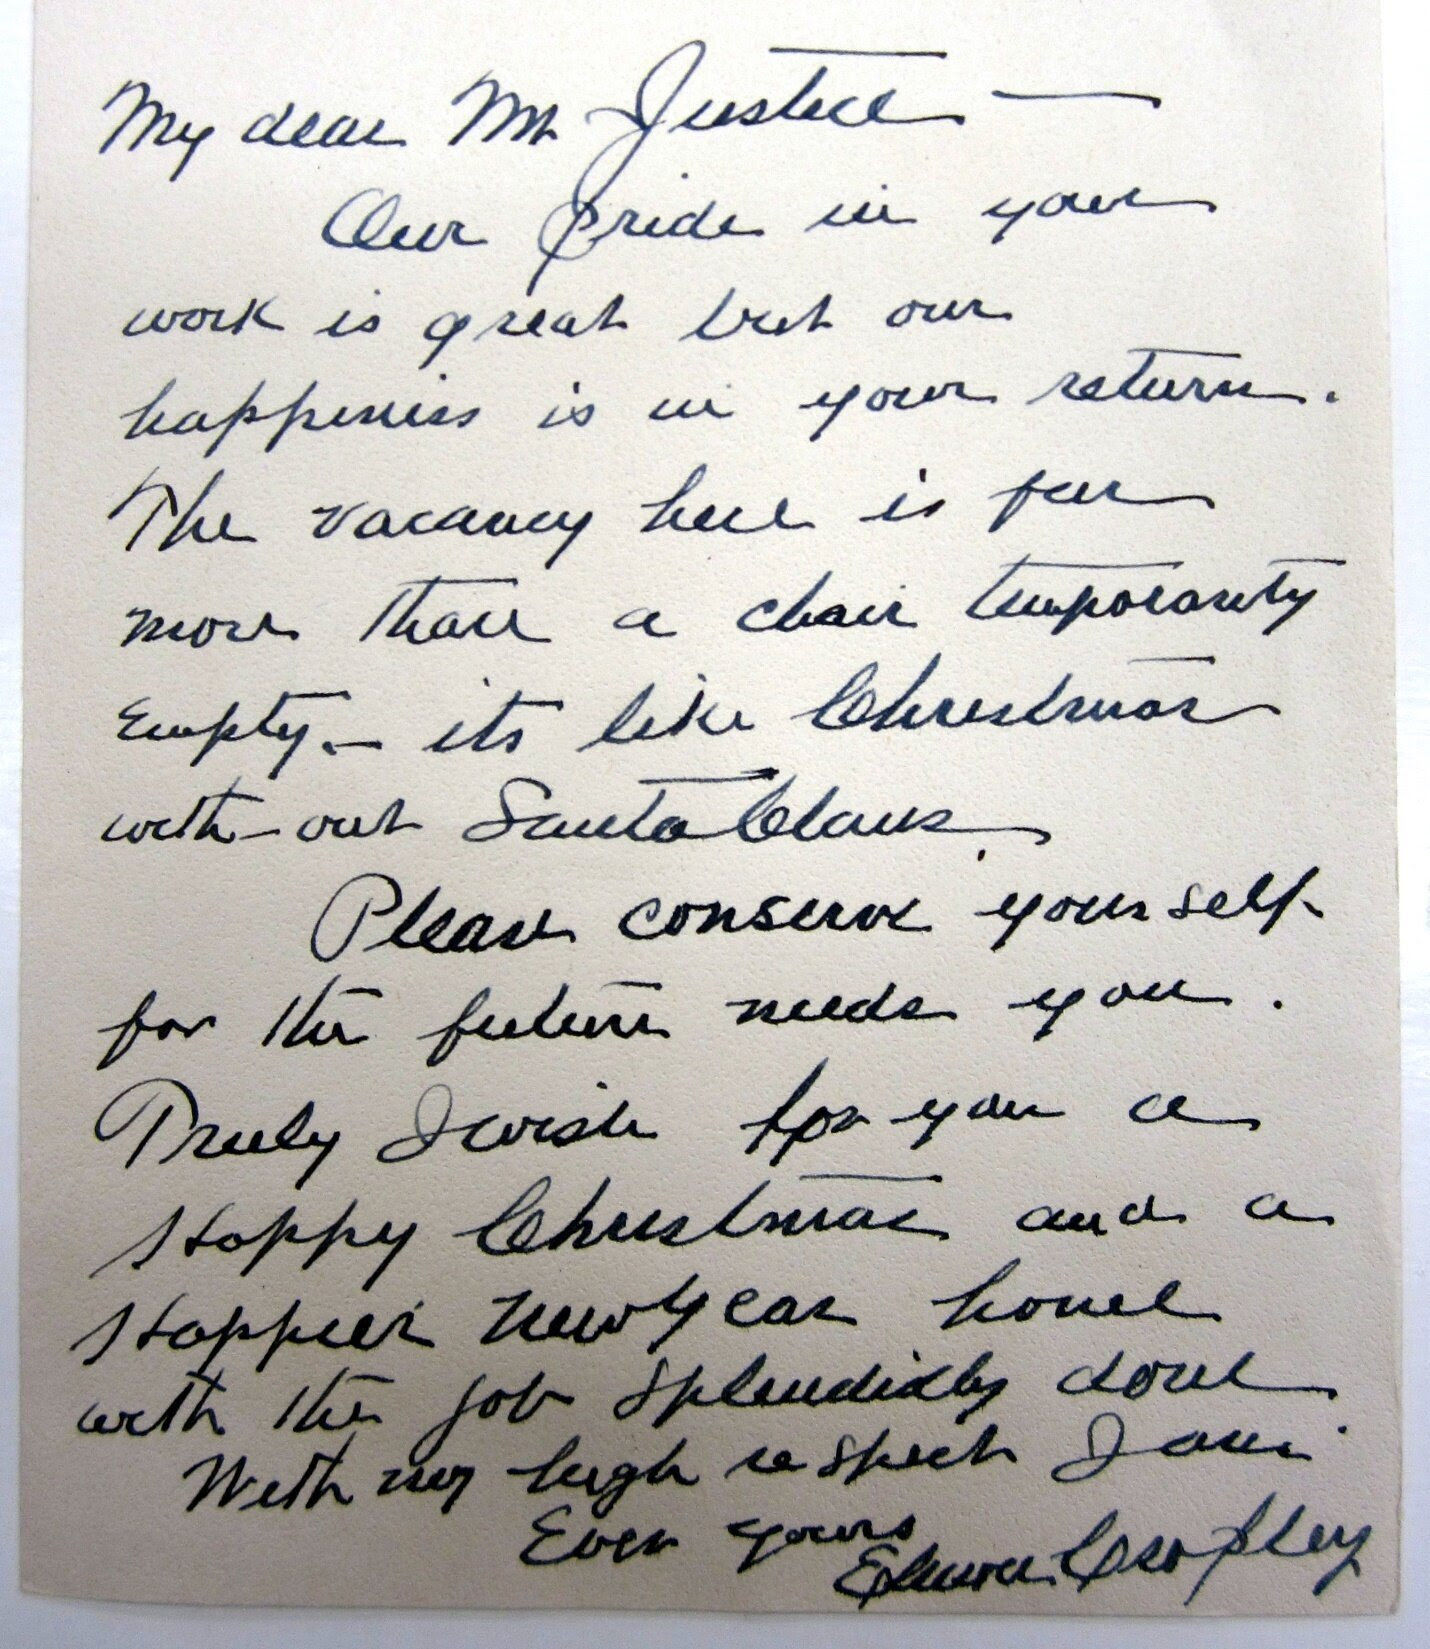 My dear Mr Justice —
Our pride in your
work is great but our
happiness is in your return.
The vacancy here is far
more than a chair temporarily
Empty. — its like Christmas
with-out Santa Claus
Please conserve yourself
for the future needs you.
Truly I wish for you a
Happy Christmas and a
Happier New Year home
with the job splendidly done
With my high respect I am
Ever yours
Elmore Cropley